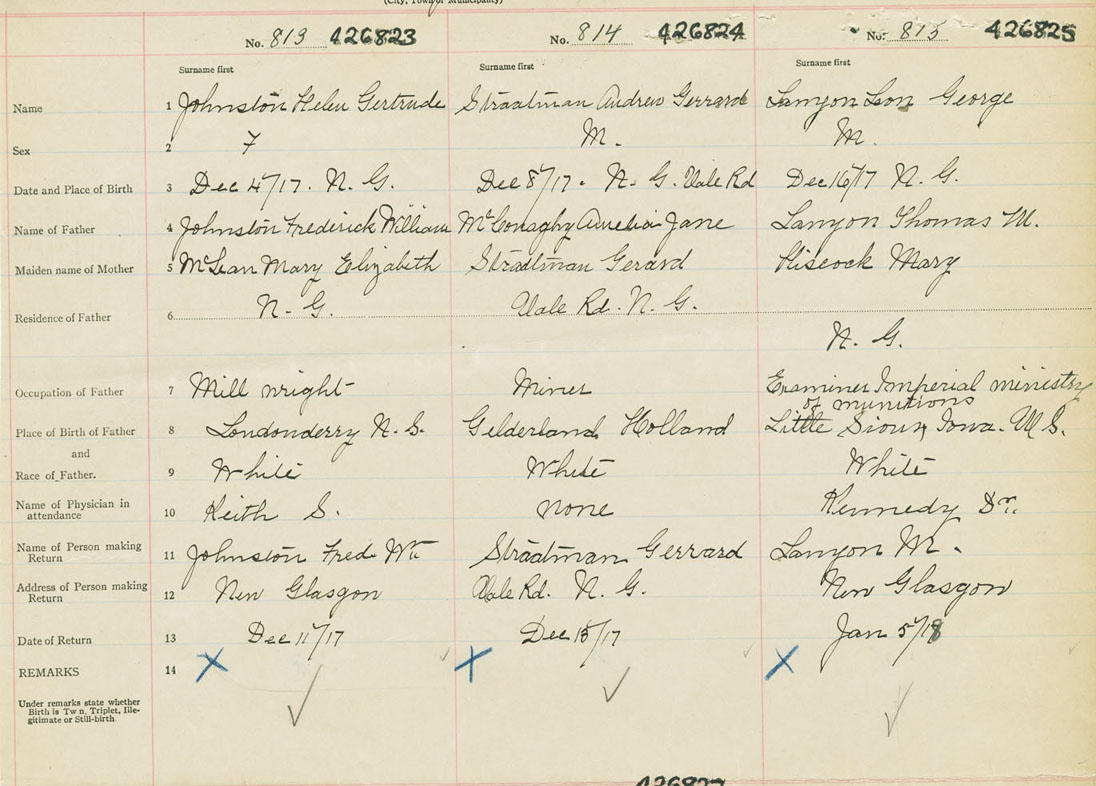 (City, Town or Municipality)
No. 813 426823 No. 814 426824 No. 815 426825
Surname first Surname first Surname first
Name 1 Johnston Helen Gertrude Straatman Andrew Gerrard Lanyon Leon George
Sex 2 F M. M.
Date and Place of Birth 3 Dec 4/17. N. G. Dec 8/17. N. G. Vale Rd Dec 16/17 N. G.
Name of Father 4 Johnston Frederick William McConaghy Amelia Jane Lanyon Thomas M.
Maiden name of Mother 5 McLean Mary Elizabeth Straatman Gerard Hiscock Mary
Residence of Father 6 N. G. Vale Rd. N. G.
N. G.
Occupation of Father 7 Mill wright Miner Examiner Imperial ministry
of munitions
Place of Birth of Father 8 Londonderry N. S. Gelderland Holland Little Sioux Iowa. U S.
and
Race of Father. 9 White White White
Name of Physician in
attendance 10 Keith S. none Kennedy Dr.
Name of Person making
Return 11 Johnston Fred Wm Straatman Gerrard Lanyon M.
Address of Person making
Return 12 New Glasgow Vale Rd. N. G. New Glasgow
Date of Return 13 Dec 11/17 Dec 15/17 Jan 5/18
REMARKS 14
Under remarks state whether
Birth is Twn, Triplet, Ille-
gitimate or Still-birth.
426827